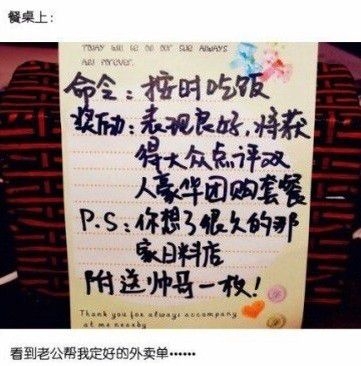 餐桌上：
Today will be on our side Always
are forever.
命令：按时吃饭
奖励：表现良好,将获
得大众点评双
人豪华团购套餐
P.S：你想了很久的那
家日料店
附送帅哥一枚！
Thank you for always accompany
at me nearby
看到老公帮我定好的外卖单······